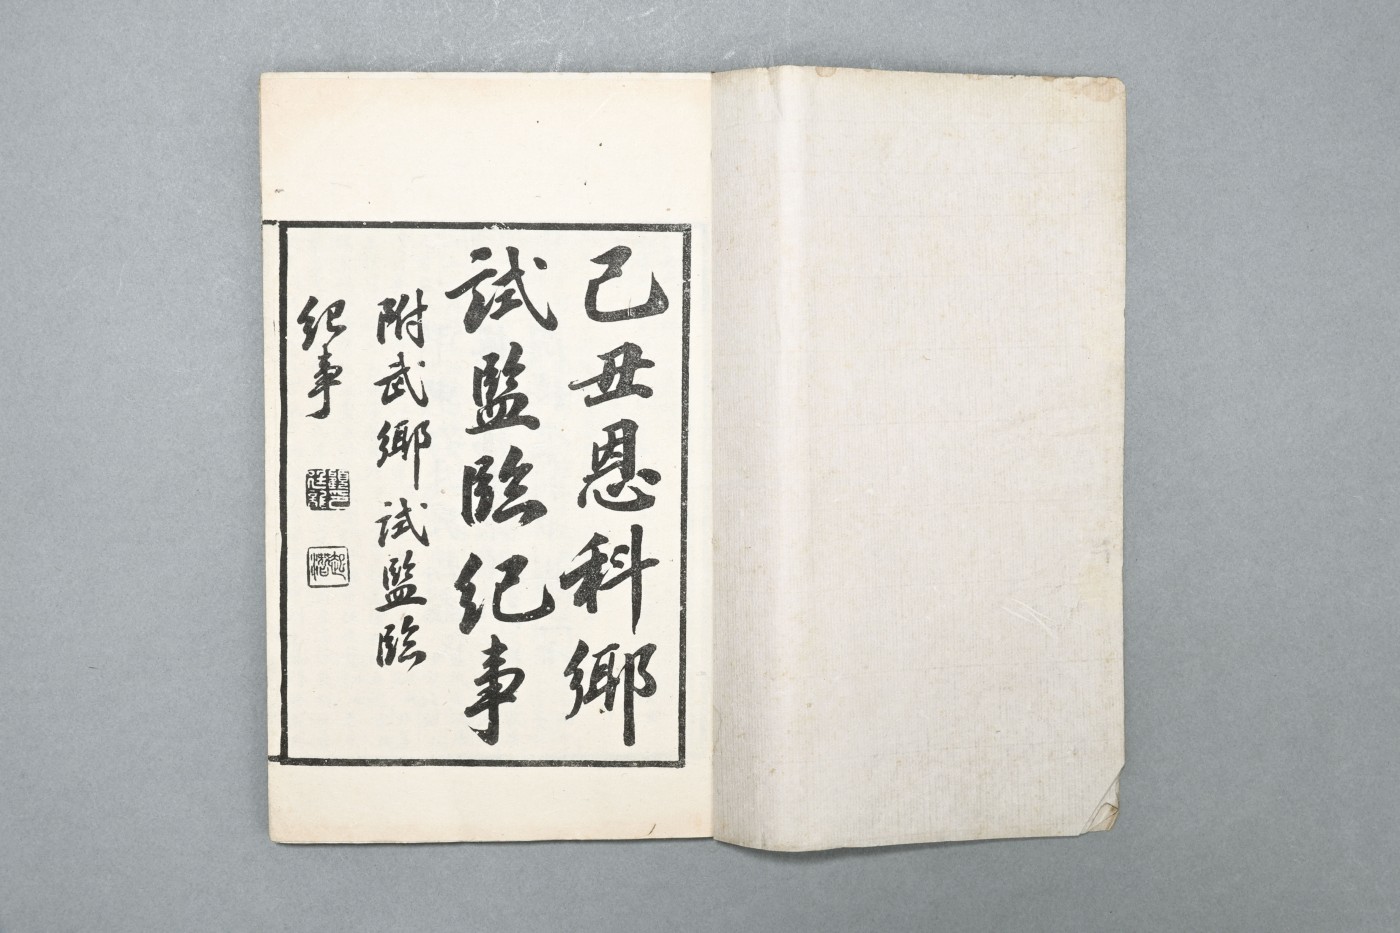 己丑恩科鄉
試監臨紀事
附武鄉試監臨
紀事